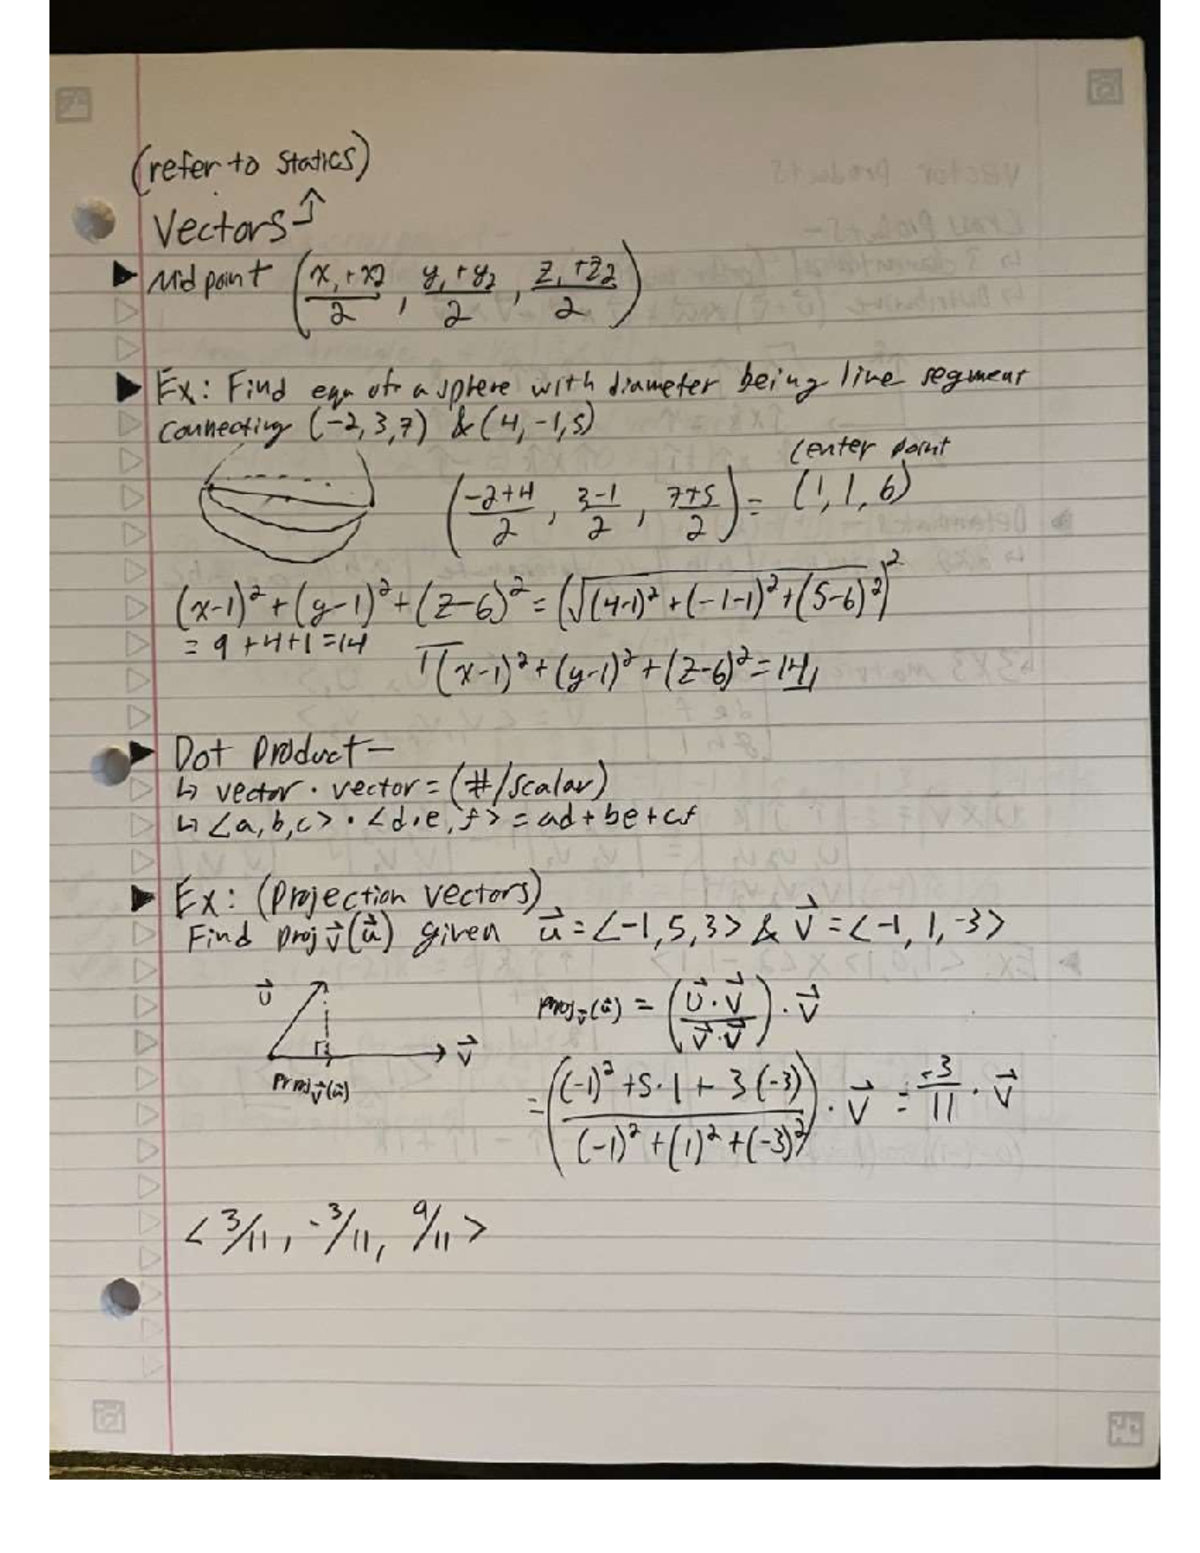 (refer to Statics)
Vectors
Midpoint (x₁+x2/2, y₁+y₂/2, z₁+z2/2)
Ex: Find eqn of a sphere with diameter being line segment
connecting (-2,3,7) & (4,-1,5)
center point
(-2+4/2, 3-1/2, 7+5/2) = (1,1,6)
(x-1)²+(y-1)²+(z-6)² = (√(4-1)²+(-1-1)²+(5-6)²)²
= 9+4+1=14
(x-1)²+(y-1)²+(z-6)²=14
Dot Product—
↳ vector · vector = (#/scalar)
↳ <a,b,c> · <d,e,f> = ad+be+cf
Ex: (Projection vectors)
Find proj v⃗(u⃗) given u⃗ = <-1,5,3> & v⃗ = <-1,1,-3>
u⃗
v⃗
Proj v⃗(u⃗)
Proj v⃗(u⃗) = (u⃗·v⃗/v⃗·v⃗)·v⃗
= ((-1)²+5·1+3(-3)/(-1)²+(1)²+(-3)²)·v⃗ = -3/11·v⃗
<3/11, -3/11, 9/11>